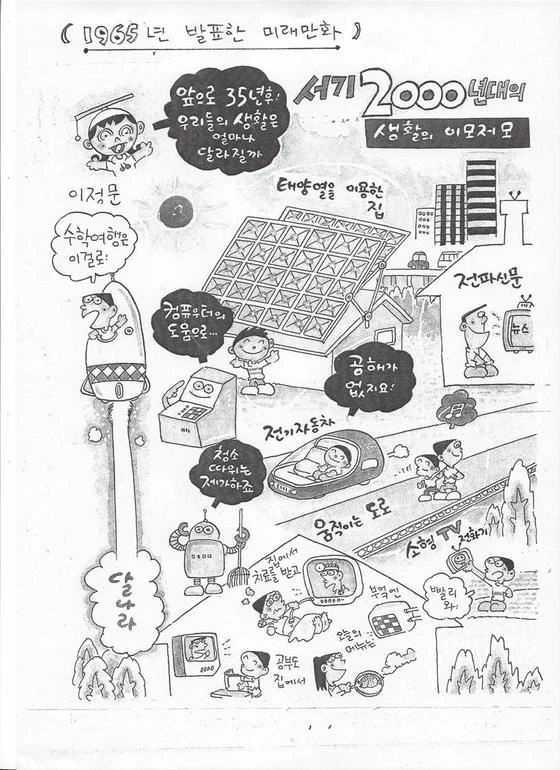 ( 1965년 발표한 미래만화 )
앞으로 35년후!
우리들의 생활은
얼마나
달라질까
서기 2000년대의
생활의 이모저모
이정문
태양열을 이용한
집
수학여행은
이걸로!
전파신문
뉴스
컴퓨우터의
도움으로...
공해가
없지요!
전기자동차
청소
따위는
제가하죠
움직이는 도로
소형 TV
전화기
빨리
와!
집에서
치료를 받고
부엌에
오늘의
메뉴는
공부도
집에서
달나라